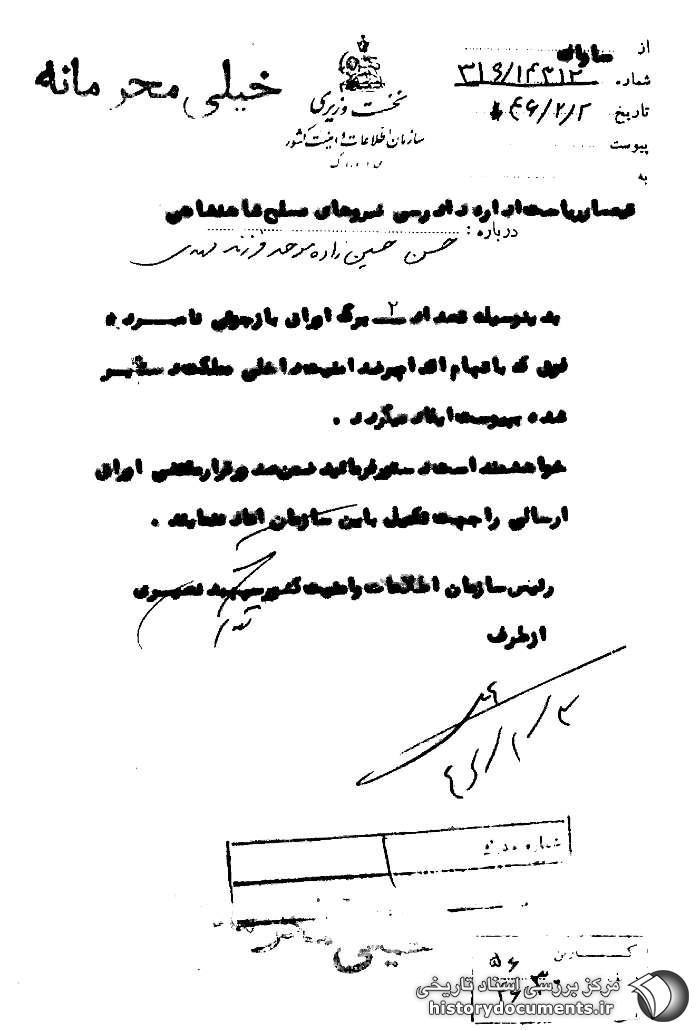 خیلی محرمانه
نخست وزیری
سازمان اطلاعات و امنیت کشور
از ساواک
شماره ۳۱۶/۱۴۳۱۲
تاریخ ۴۶/۲/۲
پیوست
به
تیمسار ریاست اداره دادرسی نیروهای مسلح شاهنشاهی
درباره :
حسن حسین زاده موحد فرزند مهدی
بدینوسیله تعداد ۲ برگ اوراق بازجوئی نامبرده
فوق که باتهام اقدام برضد امنیت داخلی مملکت دستگیر
شده بپیوست ایفاد میگردد .
خواهشمند است دستور فرمائید ضمن صدور قرار مقتضی اوراق
ارسالی را جهت تکمیل باین سازمان اعاده نمایند .
رئیس سازمان اطلاعات و امنیت کشور سپهبد نصیری
از طرف
شماره
خیلی محرمانه
مرکز بررسی اسناد تاریخی
historydocuments.ir